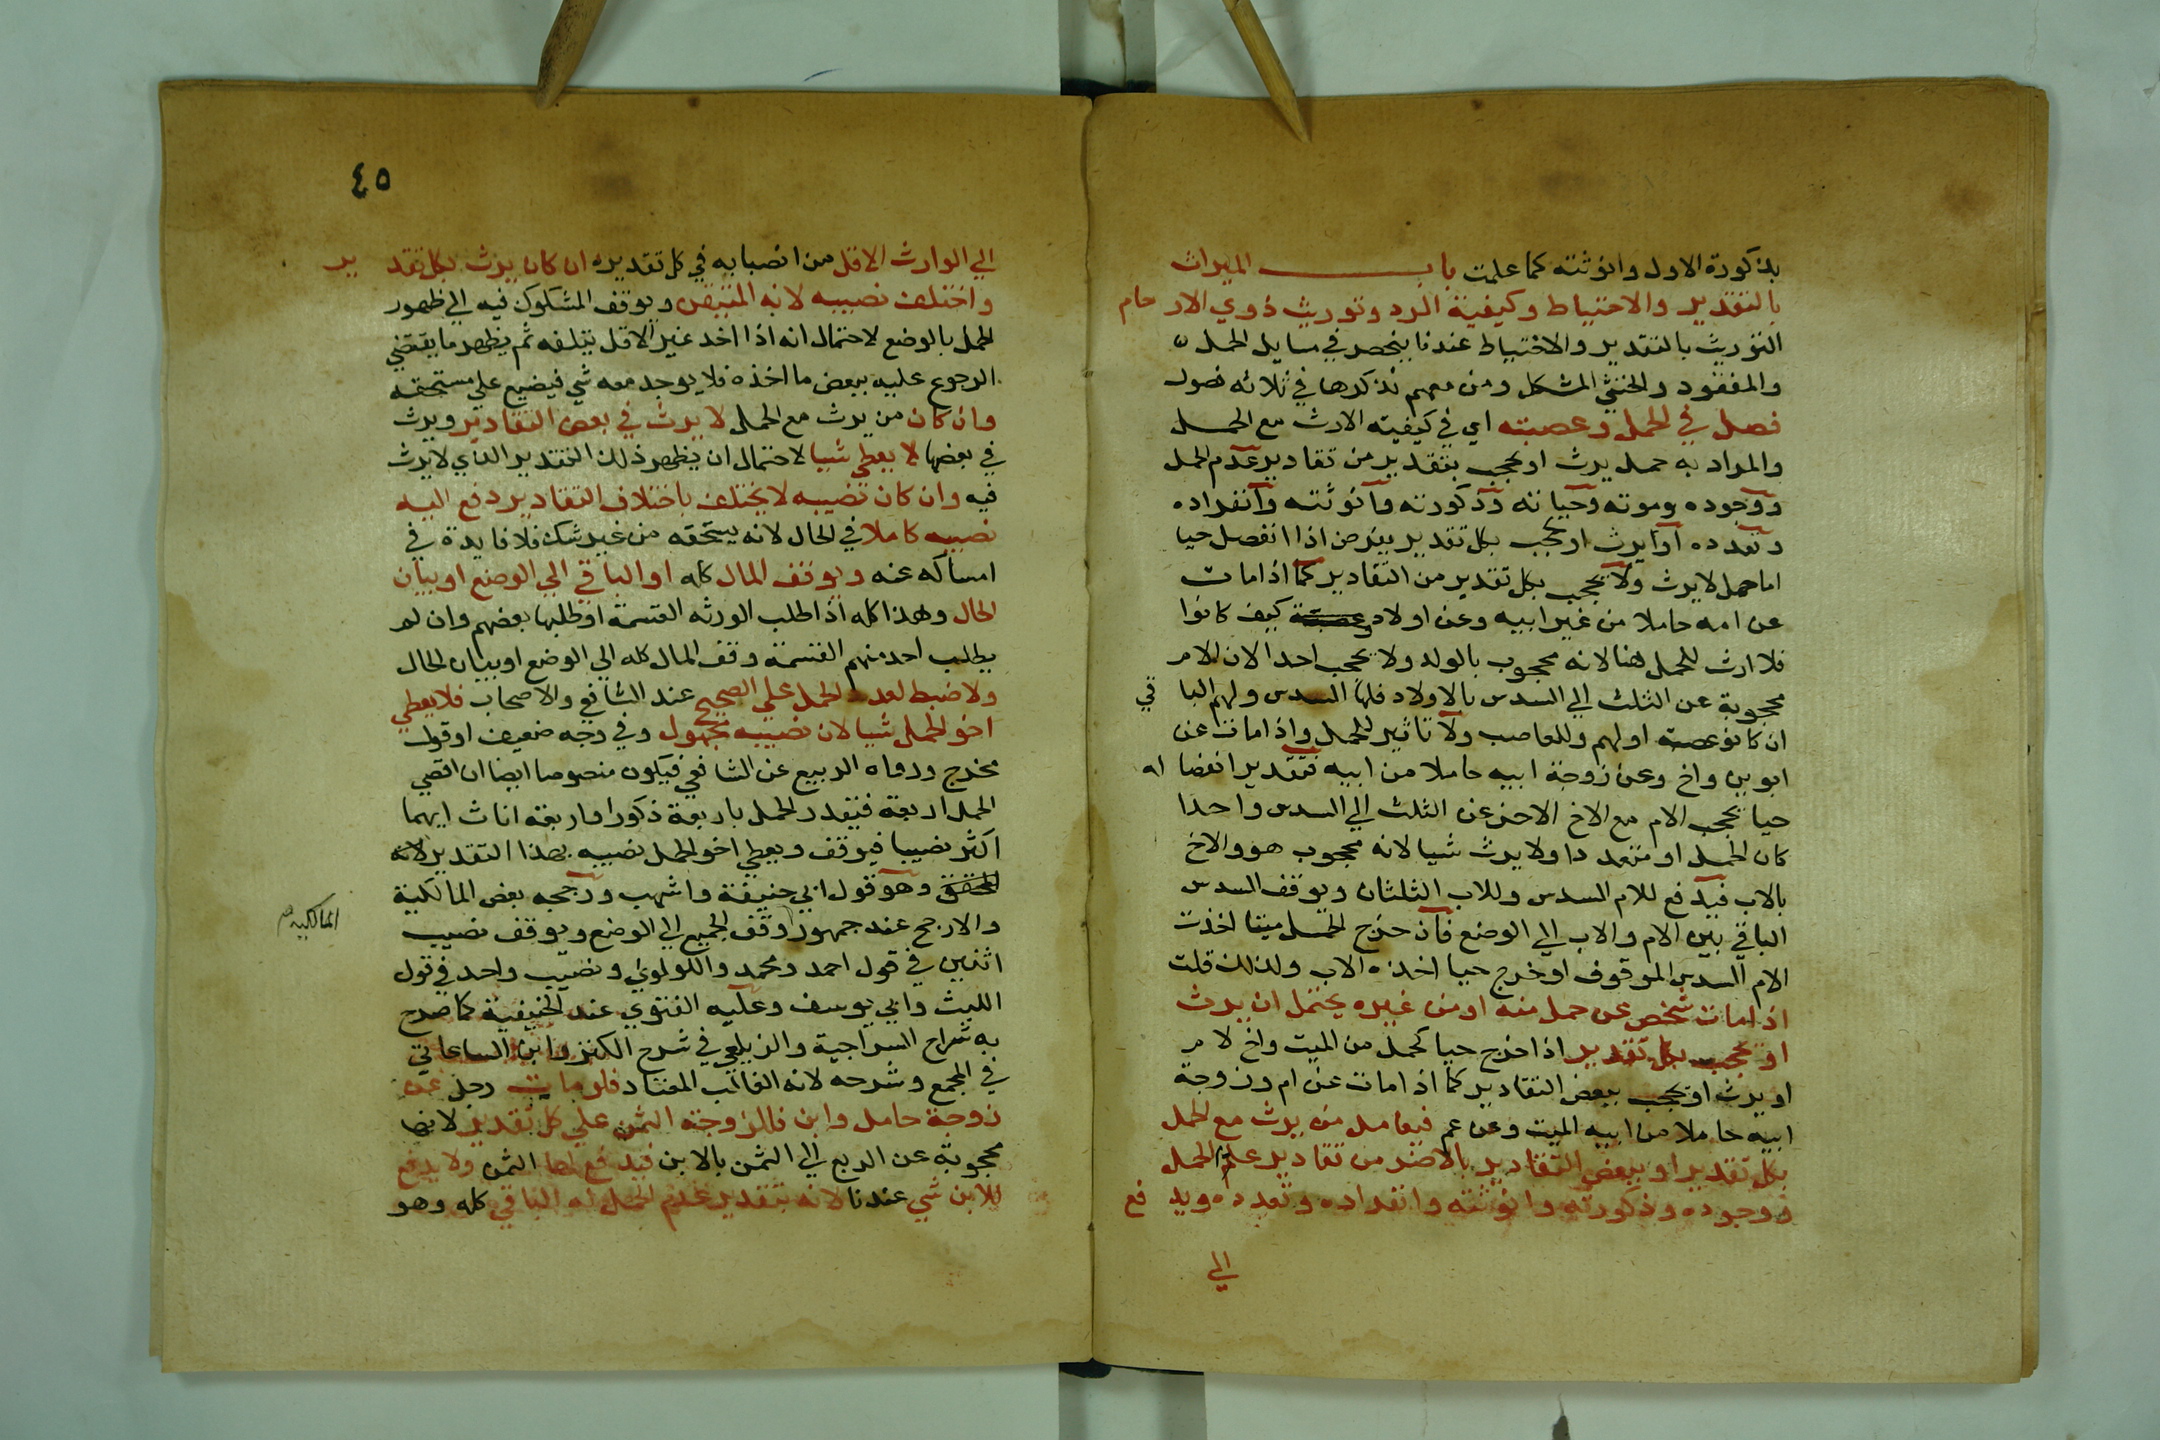 بذكورة الاول وانوثته كما علمت باب الميراث
بالتقدير والاحتياط وكيفية الرد وتوريث ذوي الارحام
التوريث بالتقدير والاحتياط عندنا ينحصر في مسايل الحمل
والمفقود والخنثي المشكل ومن معهم نذكرها في ثلاثه فصول
فصل في الحمل وعصبته اي في كيفيته الارث مع الحمل
والمراد به حمل يرث او يحجب بتقدير من تقادير عدم الحمل
ووجوده وموته وحياته وذكورته وانوثته وانفراده
وتعدده او يرث او يحجب بكل تقدير يفرض اذا انفصل حيا
اما حمل لا يرث ولا يحجب بكل تقدير من التقادير كما اذا مات
عن امه حاملا من غير ابيه وعن اولاد كيف كانوا
فلا ارث للحمل هنا لانه محجوب بالولد ولا يحجب احدا لان الام
محجوبة عن الثلث الي السدس بالاولاد فلها السدس ولهم الباقي
ان كانو عصبته اولهم وللعاصب ولا تاثير للحمل واذا مات عن
ابوين واخ وعن زوجة ابيه حاملا من ابيه فتقدير انفصاله
حيا يحجب الام مع الاخ الاخر عن الثلث الي السدس واحدا
كان الحمل او متعددا ولا يرث شيا لانه محجوب هو والاخ
بالاب فيدفع للام السدس وللاب الثلثان ويوقف السدس
الباقي بين الام والاب الي الوضع فان خرج الحمل ميتا اخذت
الام السدس الموقوف او خرج حيا اخذه الاب ولذلك قلت
اذا مات شخص عن حمل منه او من غيره يحتمل ان يرث
او يحجب بكل تقدير اذا خرج حيا كحمل من الميت واخ لام
او يرث او يحجب ببعض التقادير كما اذا مات عن ام وزوجة
ابيه حاملا من ابيه الميت وعن عم فيعامل من يرث مع الحمل
بكل تقدير او ببعض التقادير بالاضر من تقادير عدم الحمل
ووجوده وذكورته وانوثته وانفراده وتعدده ويدفع
الي
٤٥
الي الوارث الاقل من انصبابه في كل تقديره ان كان يرث بكل تقدير
واختلف نصيبه لانه المتيقن ويوقف المشكوك فيه الي ظهور
الحمل بالوضع لاحتمال انه اذا اخد غير الاقل يتلفه ثم يظهر ما يقتضي
الرجوع عليه ببعض ما اخذه فلا يوجد معه شي فيضيع علي مستحقه
وان كان من يرث مع الحمل لا يرث في بعض التقادير ويرث
في بعضها لا يعطي شيا لاحتمال ان يظهر ذلك التقدير الذي لا يرث
فيه وان كان نصيبه لا يختلف باختلاف التقادير دفع اليه
نصيبه كاملا في الحال لانه يستحقه من غير شك فلا فايدة في
امساكه عنه ويوقف المال كله او الباقي الي الوضع او بيان
الحال وهذا كله اذا طلب الورثه القسمة او طلبها بعضهم وان لم
يطلب احد منهم القسمة وقف المال كله الي الوضع او بيان الحال
ولا ضبط لعدد الحمل علي الصحيح عند الشافعي والاصحاب فلا يعطي
اخو الحمل شيا لان نصيبه مجهول وفي وجه ضعيف او قول
مخرج ورواه الربيع عن الشافعي فيكون منصوصا ايضا ان اقصي
الحمل اربعة فيقدر الحمل باربعة ذكور او اربعة اناث ايهما
اكثر نصيبا فيوقف ويعطي اخو الحمل نصيبه بهذا التقدير لانه
المحقق وهو قول ابي حنيفة واشهب ورجحه بعض المالكية
والارجح عند جمهور وقف الجميع الي الوضع ويوقف نصيب
المالكيه
اثنين في قول احمد ومحمد واللولوي ونصيب واحد في قول
الليث وابي يوسف وعليه الفتوي عند الحنيفية كما صرح
به شراح السراجية والزيلعي في شرح الكنز وابن الساعاتي
في المجمع وشرحه لانه الغالب المعتاد فلو مات رجل عن
زوجة حامل وابن فللزوجة الثمن علي كل تقدير لانها
محجوبة عن الربع الي الثمن بالابن فيدفع لها الثمن ولا يدفع
للابن شي عندنا لانه بتقدير عدم الحمل له الباقي كله وهو